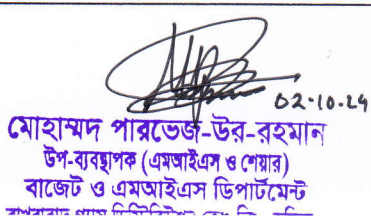 02-10-24
মোহাম্মদ পারভেজ-উর-রহমান
উপ-ব্যবস্থাপক (এমআইএস ও শেয়ার)
বাজেট ও এমআইএস ডিপার্টমেন্ট